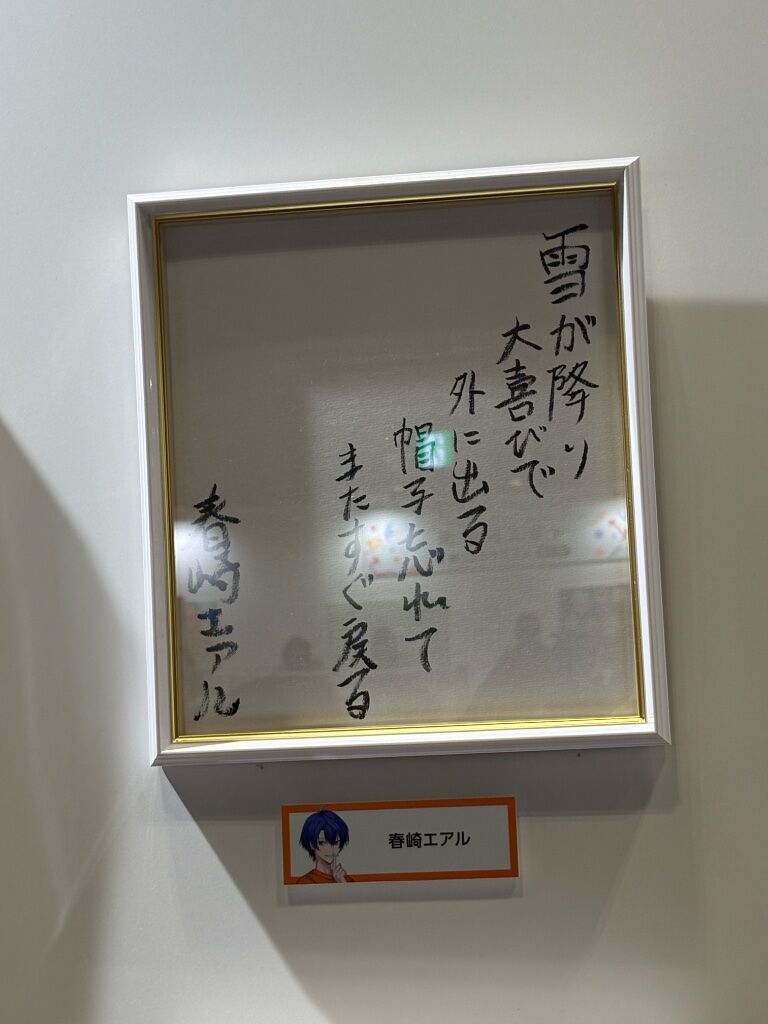 雪が降り
大喜びで
外に出る
帽子忘れて
またすぐ戻る
春崎エアル
春崎エアル